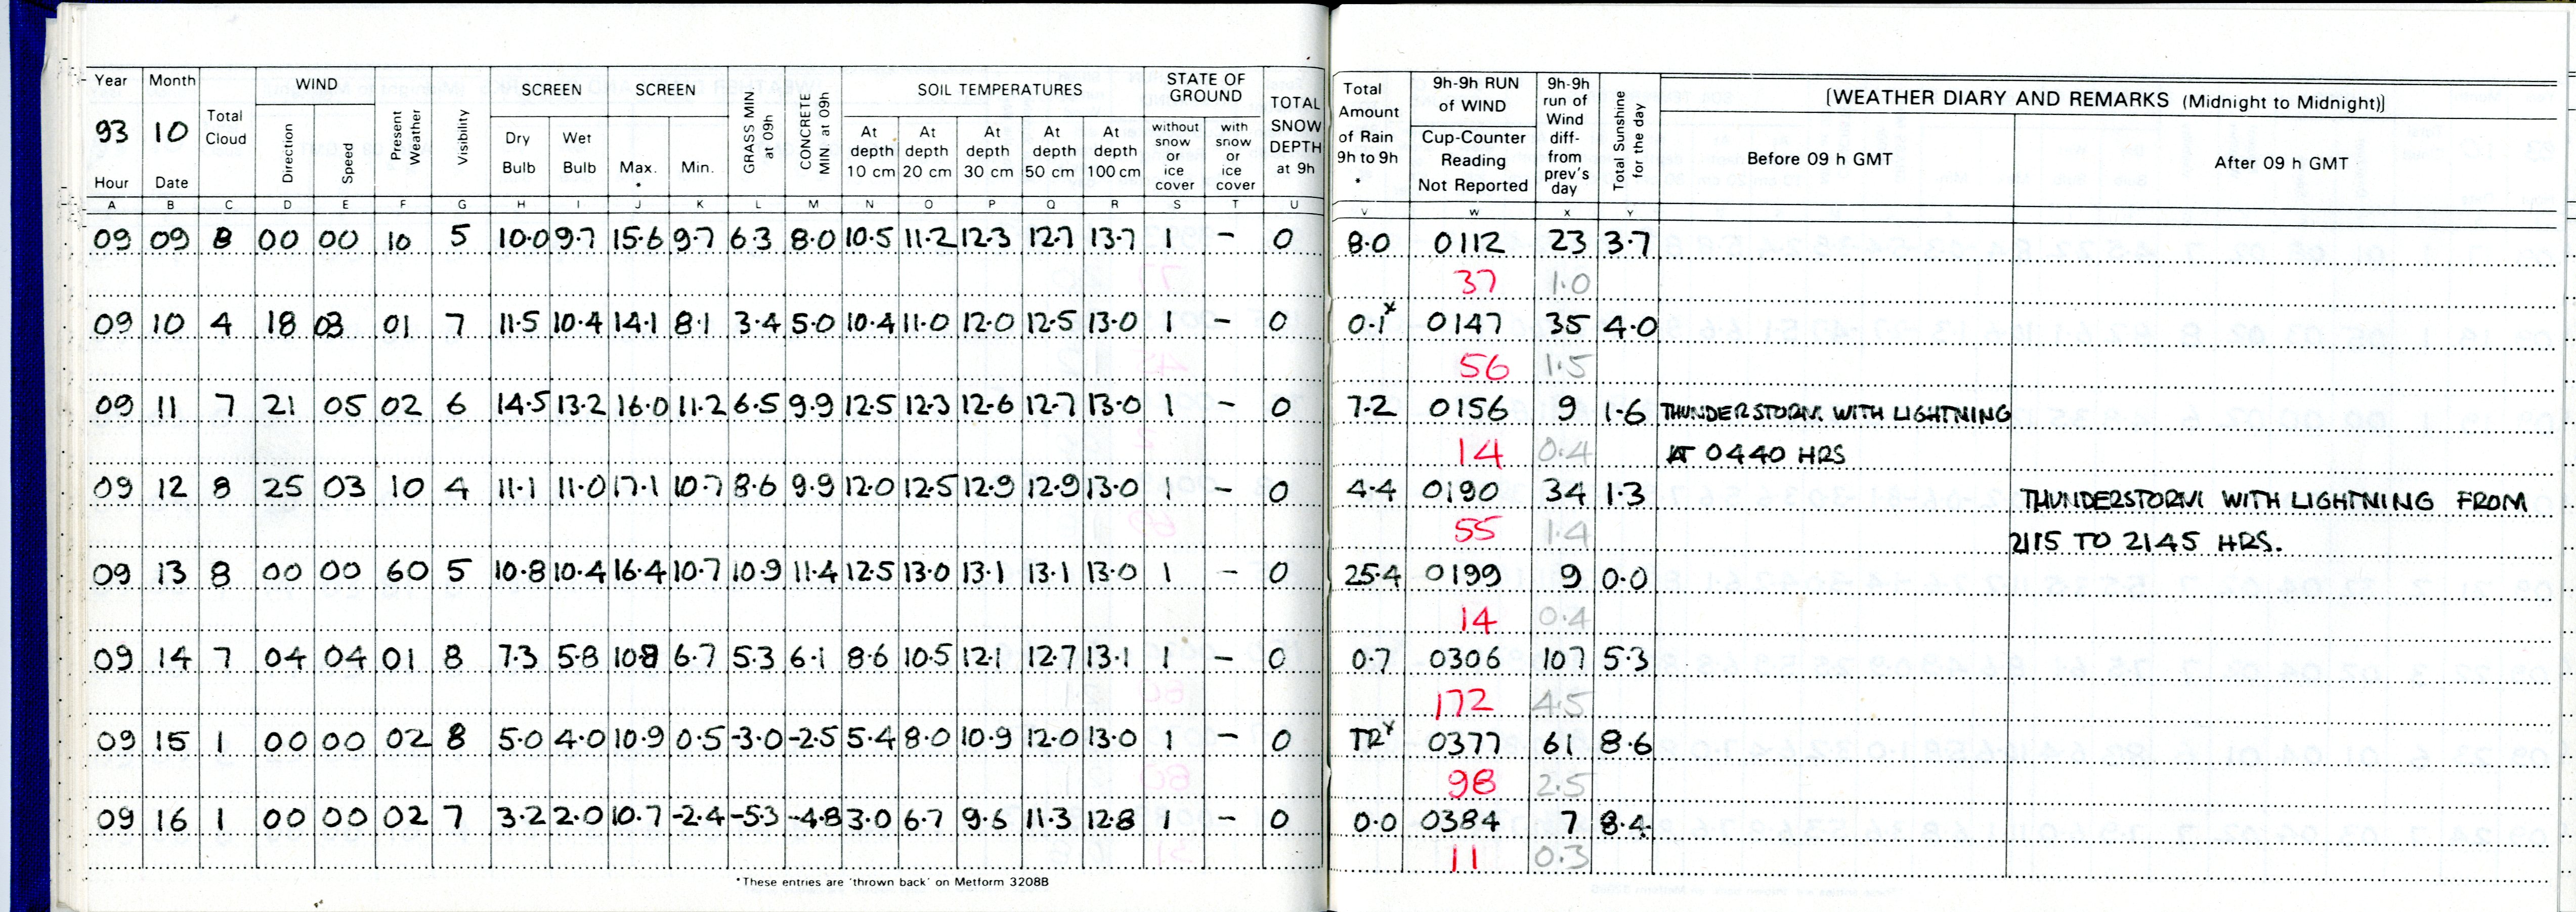 Year Month WIND SCREEN SCREEN SOIL TEMPERATURES STATE OF GROUND
93 10 Total Cloud Direction Speed Present Weather Visibility Dry Bulb Wet Bulb Max. * Min. GRASS MIN at 09h CONCRETE MIN. at 09h At depth 10 cm At depth 20 cm At depth 30 cm At depth 50 cm At depth 100 cm without snow or ice cover with snow or ice cover TOTAL SNOW DEPTH at 9h
Hour Date
Total Amount of Rain 9h to 9h * 9h-9h RUN of WIND Cup-Counter Reading Not Reported 9h-9h run of Wind diff- from prev's day Total Sunshine for the day
[WEATHER DIARY AND REMARKS (Midnight to Midnight)]
Before 09 h GMT After 09 h GMT
A B C D E F G H I J K L M N O P Q R S T U V W X Y
09 09 8 00 00 10 5 10.0 9.7 15.6 9.7 6.3 8.0 10.5 11.2 12.3 12.7 13.7 1 – 0 8.0 0112 23 3.7
37 1.0
09 10 4 18 03 01 7 11.5 10.4 14.1 8.1 3.4 5.0 10.4 11.0 12.0 12.5 13.0 1 – 0 0.1x 0147 35 4.0
56 1.5
09 11 7 21 05 02 6 14.5 13.2 16.0 11.2 6.5 9.9 12.5 12.3 12.6 12.7 13.0 1 – 0 7.2 0156 9 1.6 THUNDERSTORM WITH LIGHTNING
14 0.4 AT 0440 HRS
09 12 8 25 03 10 4 11.1 11.0 17.1 10.7 8.6 9.9 12.0 12.5 12.9 12.9 13.0 1 – 0 4.4 0190 34 1.3 THUNDERSTORM WITH LIGHTNING FROM
55 1.4 2115 TO 2145 HRS.
09 13 8 00 00 60 5 10.8 10.4 16.4 10.7 10.9 11.4 12.5 13.0 13.1 13.1 13.0 1 – 0 25.4 0199 9 0.0
14 0.4
09 14 7 04 04 01 8 7.3 5.8 10.8 6.7 5.3 6.1 8.6 10.5 12.1 12.7 13.1 1 – 0 0.7 0306 107 5.3
172 4.5
09 15 1 00 00 02 8 5.0 4.0 10.9 0.5 -3.0 -2.5 5.4 8.0 10.9 12.0 13.0 1 – 0 TRx 0377 61 8.6
98 2.5
09 16 1 00 00 02 7 3.2 2.0 10.7 -2.4 -5.3 -4.8 3.0 6.7 9.6 11.3 12.8 1 – 0 0.0 0384 7 8.4
11 0.3
*These entries are 'thrown back' on Metform 3208B